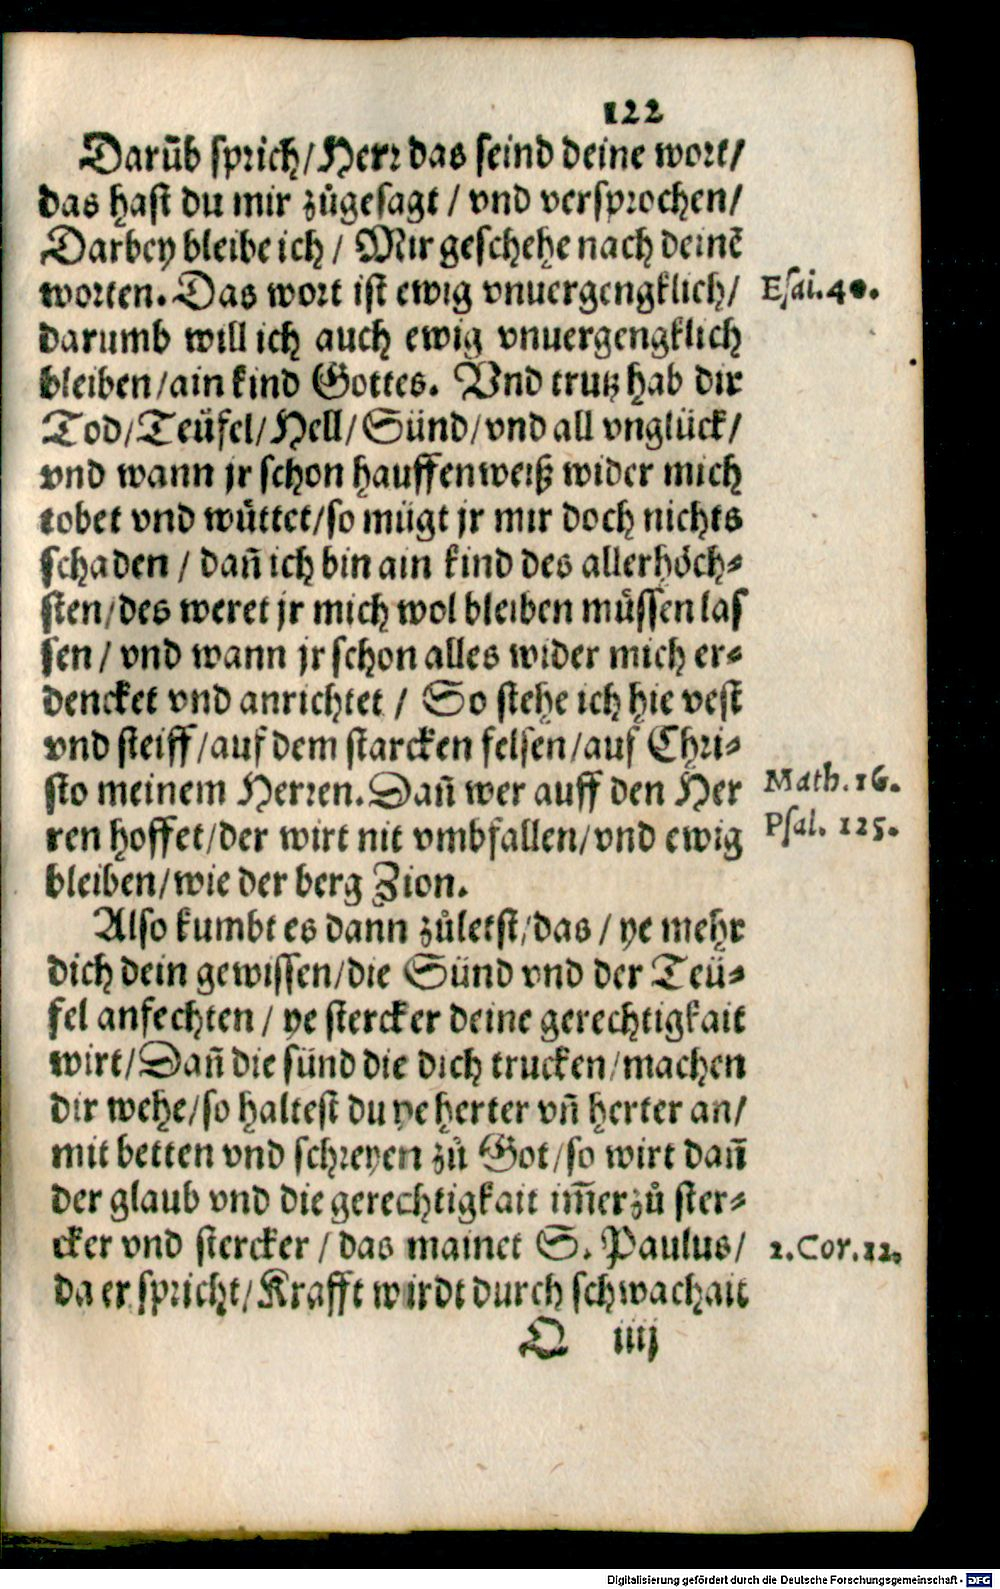 122
Darūb sprich/Herr das seind deine wort/
das hast du mir zůgesagt / vnd versprochen/
Darbey bleibe ich / Mir geschehe nach deinē
worten. Das wort ist ewig vnuergengklich/ Esai.40.
darumb will ich auch ewig vnuergengklich
bleiben/ain kind Gottes. Vnd trutz hab dir
Tod/Teüfel/Hell/Sünd/vnd all vnglück/
vnd wann jr schon hauffenweiß wider mich
tobet vnd wůttet/so mügt jr mir doch nichts
schaden / dañ ich bin ain kind des allerhöch-
sten/des weret jr mich wol bleiben müssen las
sen / vnd wann jr schon alles wider mich er-
dencket vnd anrichtet / So stehe ich hie vest
vnd steiff/auf dem starcken felsen/auf Chri-
sto meinem Herren. Dañ wer auff den Her Math.16.
ren hoffet/der wirt nit vmbfallen/vnd ewig Psal. 125.
bleiben/wie der berg Zion.
Also kumbt es dann zůletst/das / ye mehr
dich dein gewissen/die Sünd vnd der Teü-
fel anfechten / ye stercker deine gerechtigkait
wirt/Dañ die sünd die dich trucken/machen
dir wehe/so haltest du ye herter vñ herter an/
mit betten vnd schreyen zů Got/so wirt dañ
der glaub vnd die gerechtigkait im̄er zů ster-
cker vnd stercker / das mainet S. Paulus/ 2.Cor.12.
da er spricht/Krafft wirdt durch schwachait
Q iiij
Digitalisierung gefördert durch die Deutsche Forschungsgemeinschaft - DFG